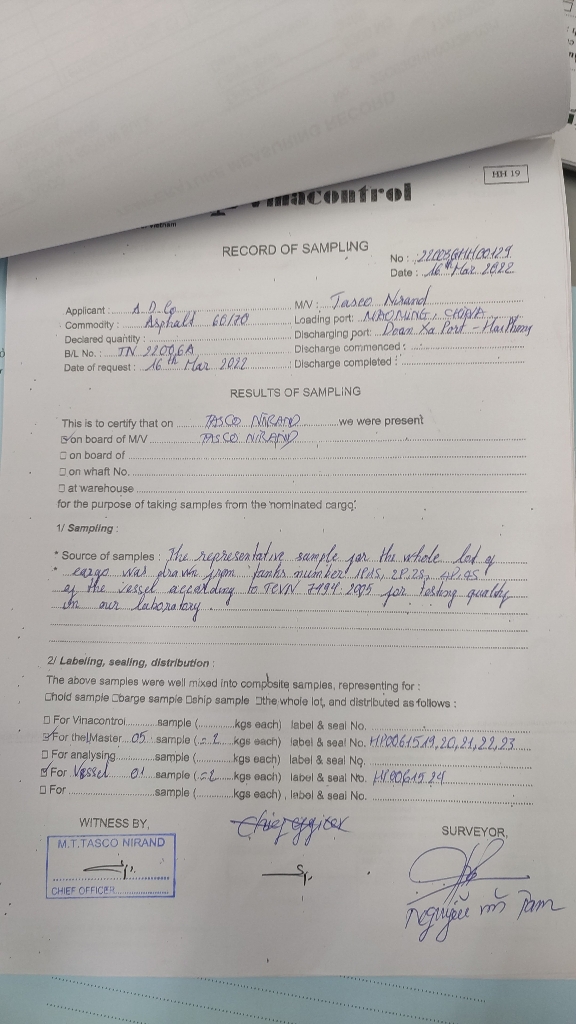 HH 19
Vinacontrol
RECORD OF SAMPLING
No : 22G03GHH00129
Date : 16th Mar 2022
Applicant : A.D.Co
M/V : Tasco Nirand
Commodity : Asphalt 60/70
Loading port: MAOMING, CHINA
Declared quantity :
Discharging port: Doan Xa Port - Hai Phong
B/L No. : TN 22006A
Discharge commenced :
Date of request : 16th Mar 2022
Discharge completed :
RESULTS OF SAMPLING
This is to certify that on TASCO NIRAND we were present
☑ on board of M/V TASCO NIRAND
☐ on board of
☐ on whaft No.
☐ at warehouse
for the purpose of taking samples from the nominated cargo.
1/ Sampling :
* Source of samples : The representative sample for the whole lot of
* cargo was drawn from tanks number 1P1S, 2P,2S, 4P,4S
of the vessel according to TCVN 7494:2005 for testing quality
in our laboratory.
2/ Labeling, sealing, distribution :
The above samples were well mixed into composite samples, representing for :
☐hold sample ☐barge sample ☐ship sample ☐the whole lot, and distributed as follows :
☐ For Vinacontrol sample ( kgs each) label & seal No.
☑ For the Master 05 sample ( 2 kgs each) label & seal No. HP0061519,20,21,22,23
☐ For analysing sample ( kgs each) label & seal No.
☑ For Vessel 01 sample ( 2 kgs each) label & seal No. HP0061524
☐ For sample ( kgs each) , label & seal No.
WITNESS BY,
Chief officer
SURVEYOR,
M.T.TASCO NIRAND
CHIEF OFFICER